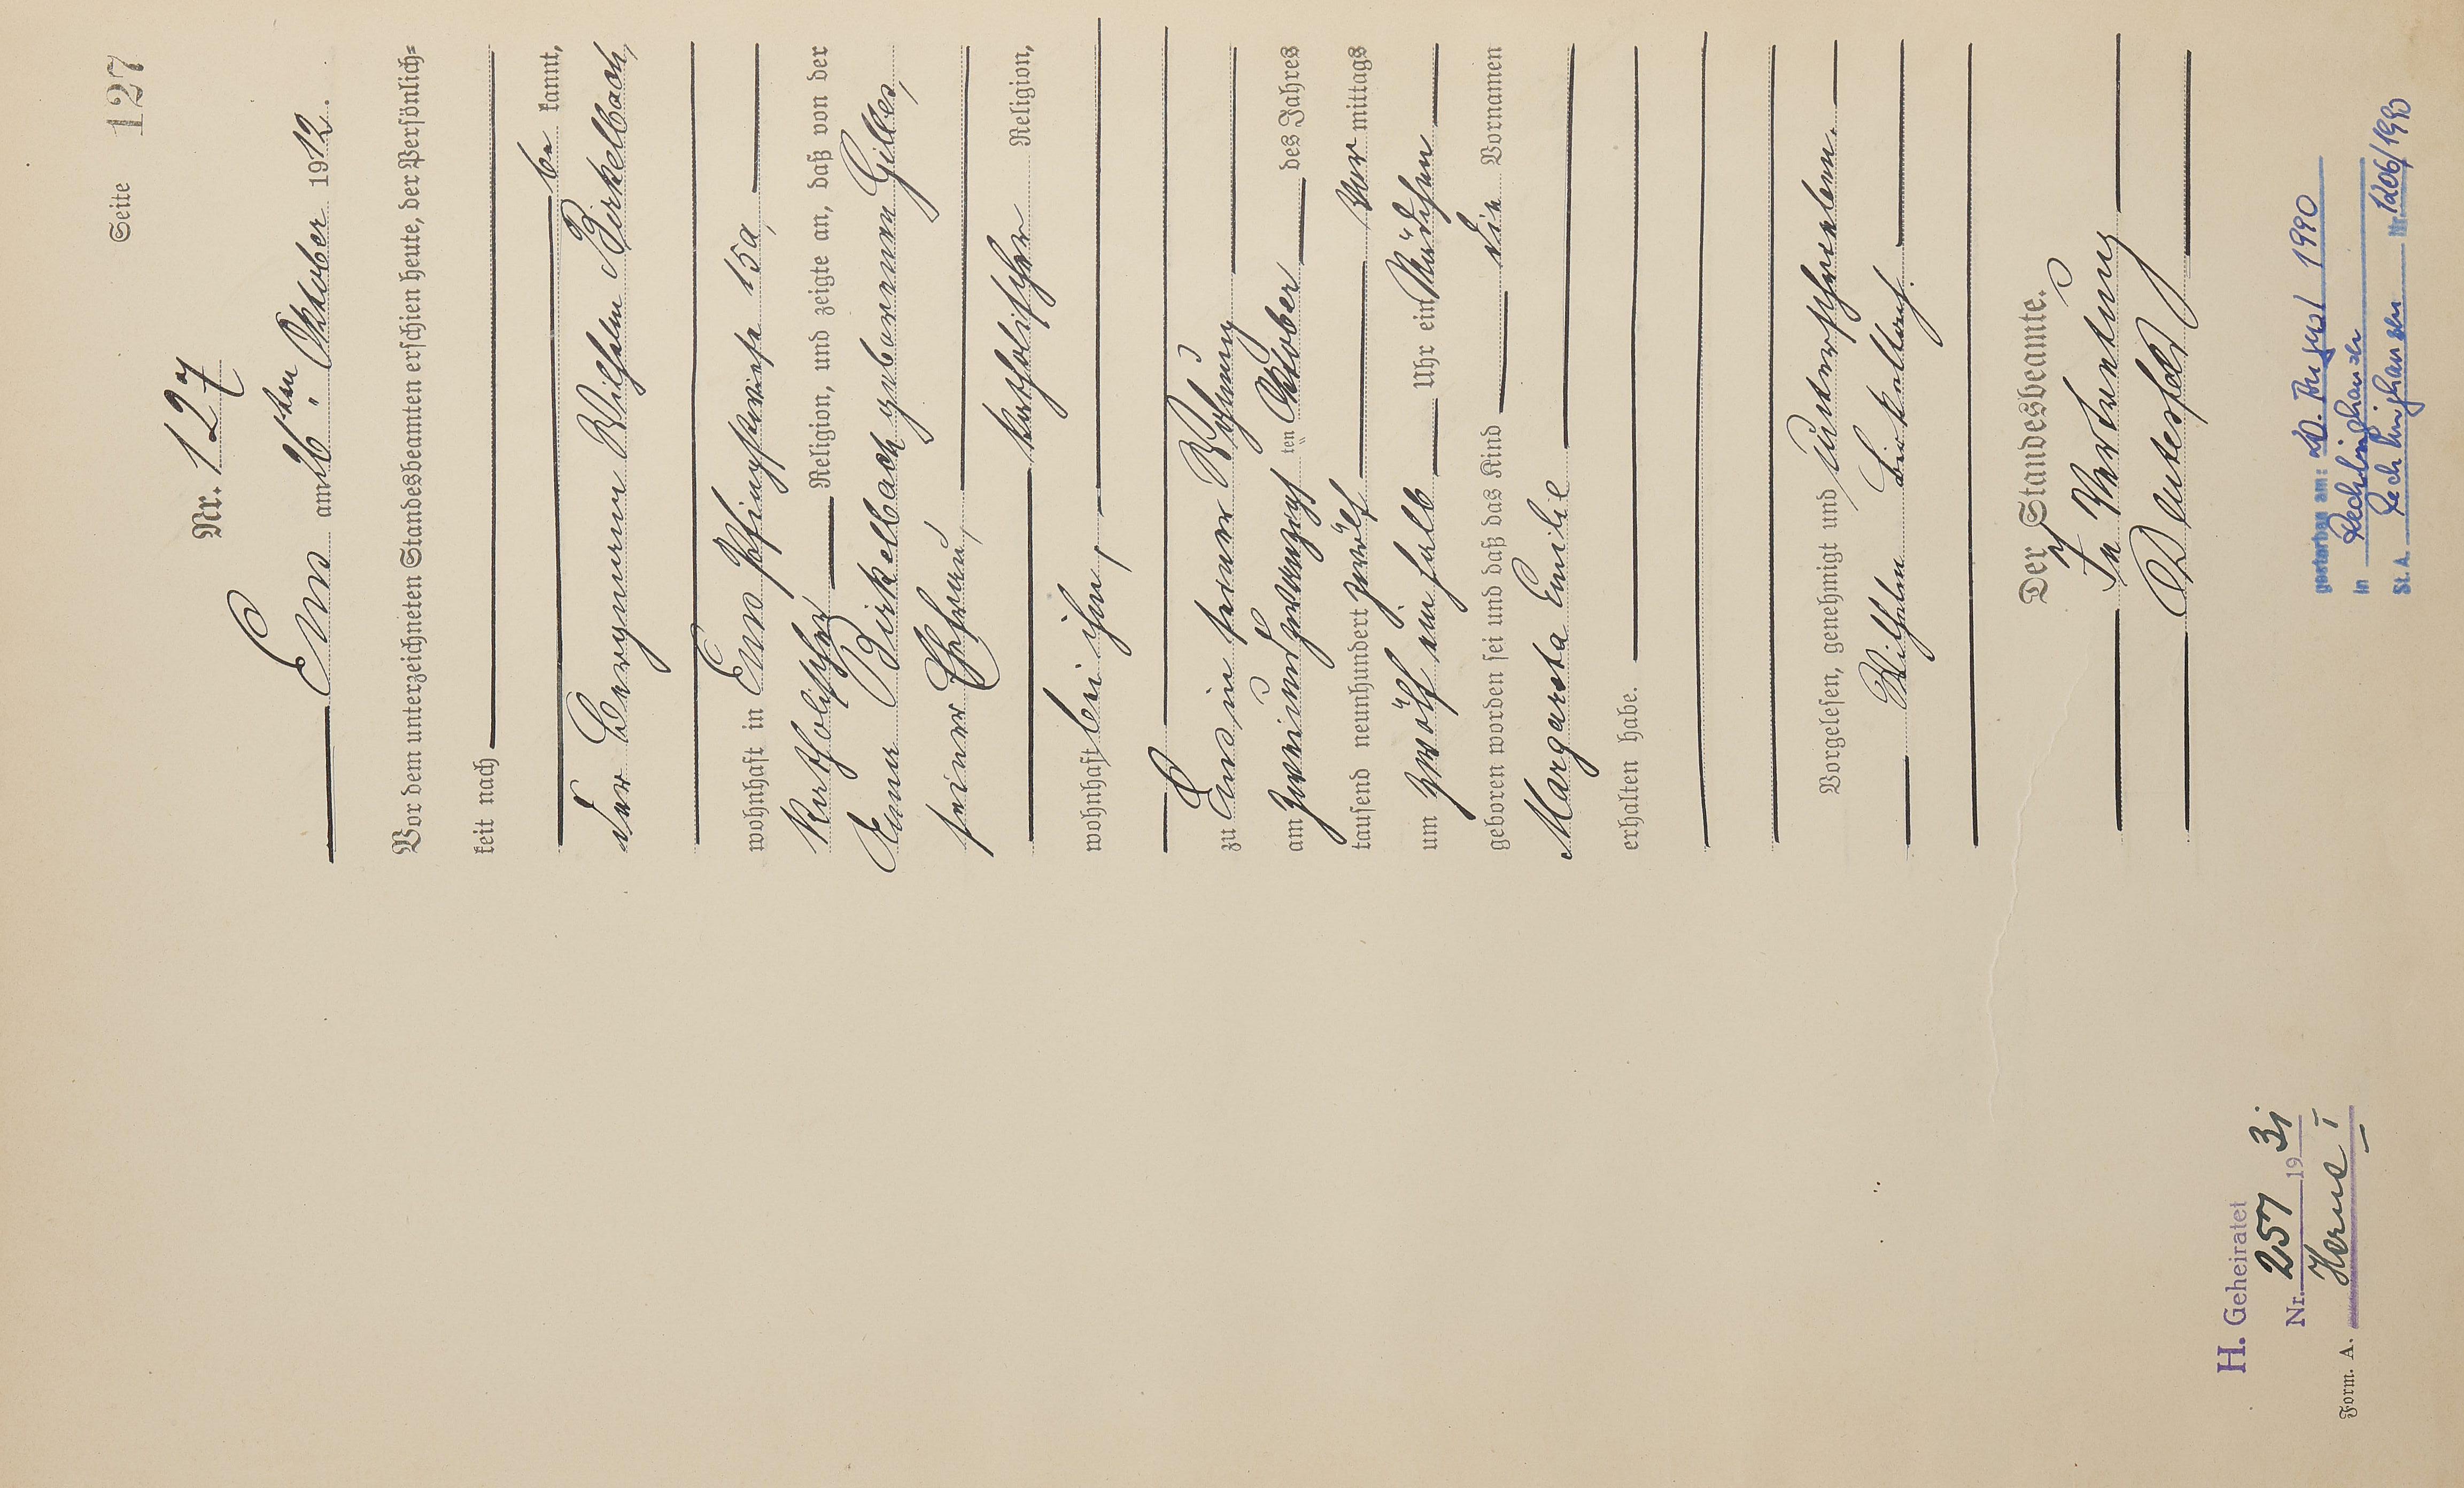 Seite 127
Nr. 127
am 26ten Oktober 1912.
Vor dem unterzeichneten Standesbeamten erschien heute, der Persönlich=
keit nach
be kannt,
der Bergmann Wilhelm Birkelbach,
wohnhaft in Pfingstwiese 15a,
katholischer Religion, und zeigte an, daß von der
Anna Birkelbach geborenen Gilles,
seiner Ehefrau,
katholischer Religion,
wohnhaft bei ihm,
zu Ems in seiner Wohnung
am zweiundzwanzigsten Oktober des Jahres
tausend neunhundert zwölf Vor mittags
um zwölf ein halb Uhr ein Mädchen
geboren worden sei und daß das Kind die Vornamen
Margareta Emilie
erhalten habe.
Vorgelesen, genehmigt und unterschrieben.
Wilhelm Birkelbach.
Der Standesbeamte.
In Vertretung
H. Geheiratet
Nr. 257 1931
Herne I
Form. A.
gestorben am: 20. August 1990
in Recklinghausen
St. A. Recklinghausen Nr. 1206/1990